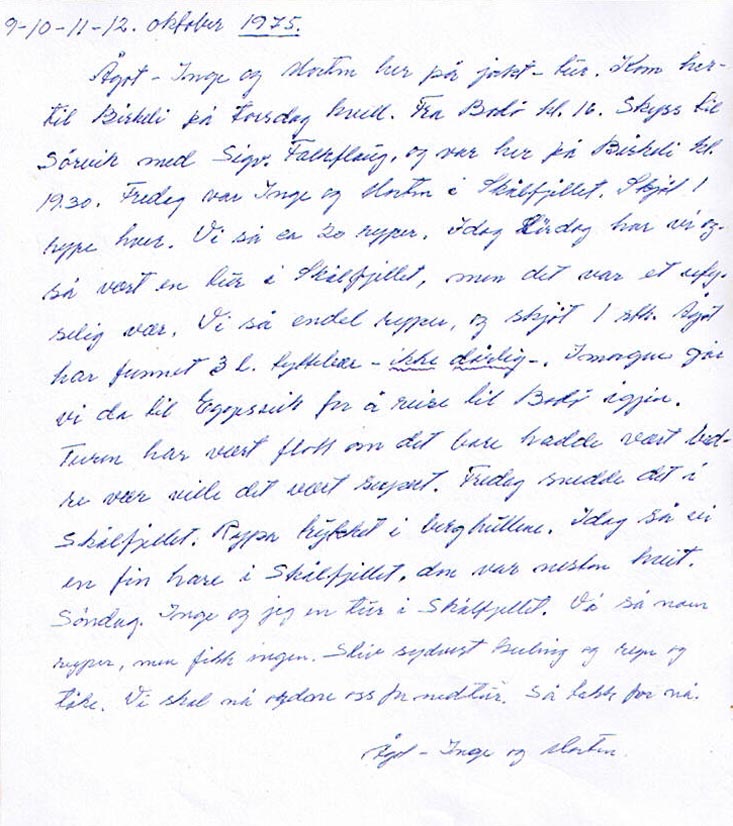 9-10-11-12. oktober 1975.
Ågot - Inge og Morten her på jakt-tur. Kom her-
til Birkeli på torsdag kveld. Fra Bodø kl. 16. Skyss til
Sörvik med Sigv. Falkflaug, og var her på Birkeli kl.
1930. Fredag var Inge og Morten i Skålfjellet. Skjöt 1
rype hver. Vi så ca 20 ryper. Idag Lördag har vi og-
så vært en tur i Skålfjellet, men det var et ufy-
selig vær. Vi så endel ryper, og skjöt 1 stk. Ågot
har funnet 3 l. tyttebær - ikke dårlig -. Imorgen går
vi da til for å reise til Bodø igjen.
Turen har vært flott om det bare hadde vært bed-
re vær ville det vært supert. Fredag snedde det i
Skålfjellet. Rypa trykket i berghullene. Idag så vi
en fin hare i Skålfjellet, den var nesten hvit.
Søndag. Inge og jeg en tur i Skålfjellet. Vå så noen
ryper, men fikk ingen. Stiv sydvest kuling og regn og
tåke. Vi skal nå ordne oss for nedtur. Så takk for nå.
Ågot - Inge og Morten.